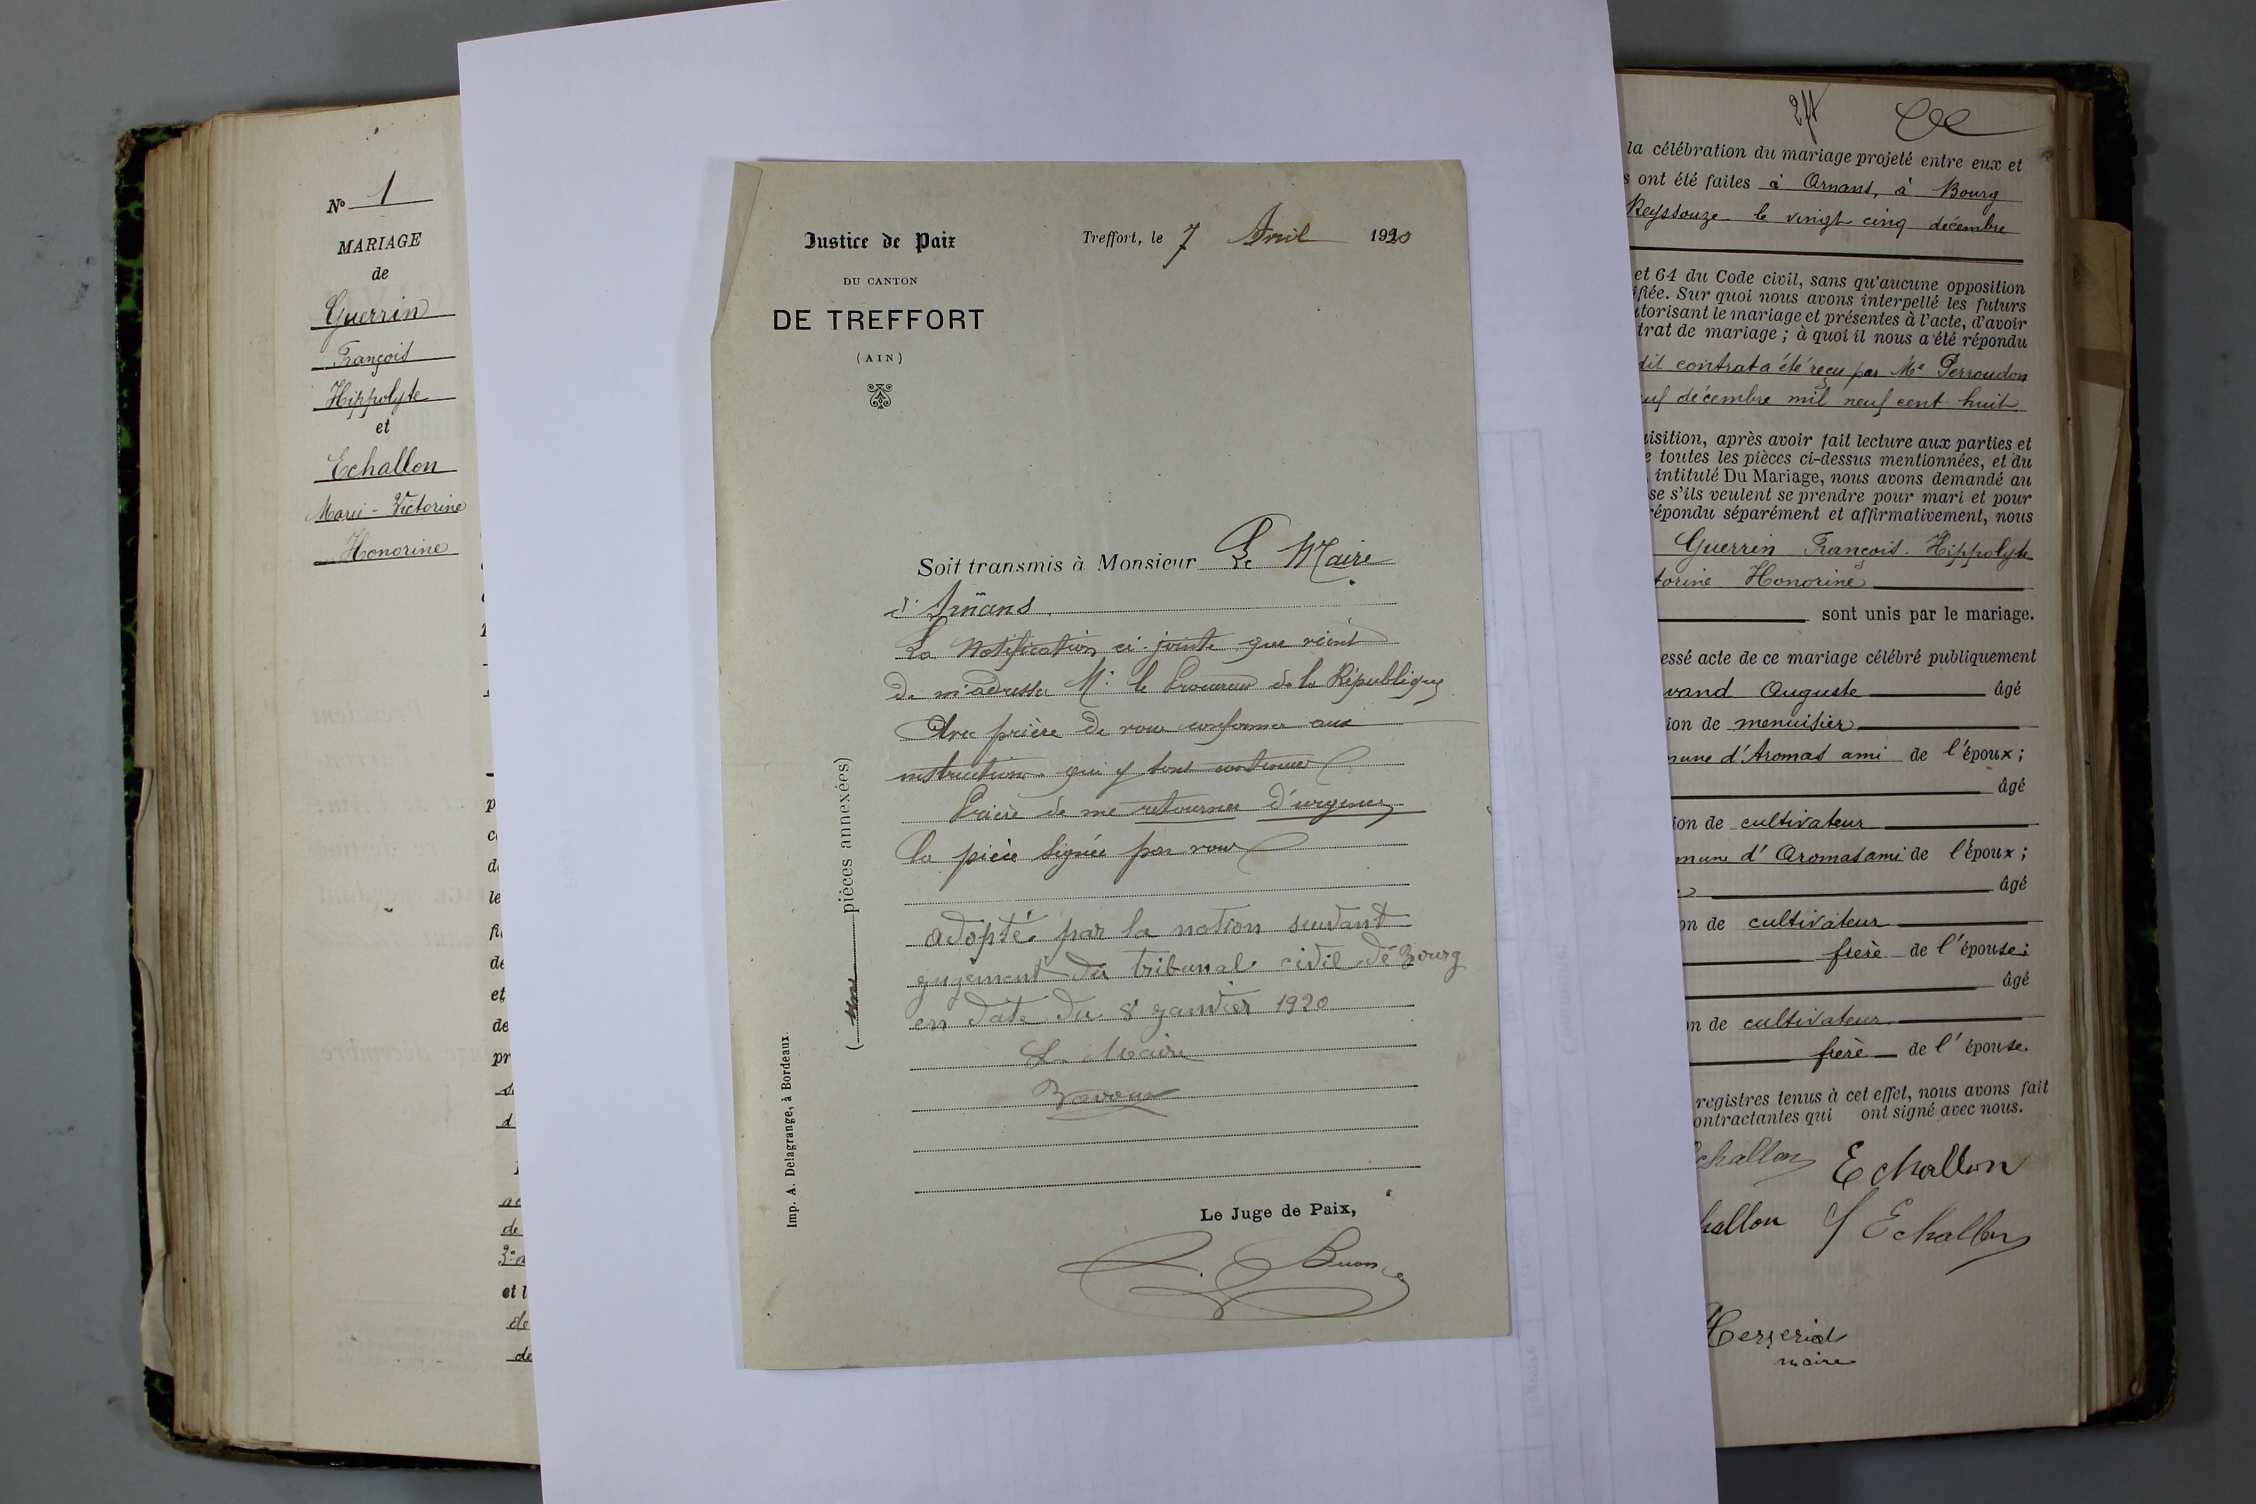 N° 1
MARIAGE
de
Guerrin
François
Hippolyte
et
Echallon
Marie-Victorine
Honorine
Justice de Paix
DU CANTON
DE TREFFORT
(AIN)
Treffort, le 7 Avril 1920
Soit transmis à Monsieur Le Maire
d'Arnans
La Notification ci-jointe que vient
de m'adresser Mr le Procureur de la République
Avec prière de vous conformer aux
instructions qui y sont contenues
Prière de me retourner d'urgence
la pièce signée par vous
adopté par la nation suivant
jugement du tribunal civil de Bourg
en date du 8 janvier 1920
Le Maire
Le Juge de Paix,
Buon
( une pièces annexées)
Imp. A. Delagrange, à Bordeaux.
la célébration du mariage projeté entre eux et
s ont été faites à Arnans, à Bourg
Reyssouze le vingt cinq décembre
et 64 du Code civil, sans qu'aucune opposition
ifiée. Sur quoi nous avons interpellé les futurs
utorisant le mariage et présentes à l'acte, d'avoir
trat de mariage ; à quoi il nous a été répondu
dit contrat a été reçu par Me Perroudon
euf décembre mil neuf cent huit
uisition, après avoir fait lecture aux parties et
e toutes les pièces ci-dessus mentionnées, et du
intitulé Du Mariage, nous avons demandé au
se s'ils veulent se prendre pour mari et pour
répondu séparément et affirmativement, nous
Guerrin François-Hippolyte
torine Honorine
sont unis par le mariage.
essé acte de ce mariage célébré publiquement
vand Auguste âgé
ion de menuisier
mune d'Aromas ami de l'époux ;
âgé
ion de cultivateur
mune d'Aromas ami de l'époux ;
âgé
on de cultivateur
frère de l'épouse ;
âgé
on de cultivateur
frère de l'épouse
registres tenus à cet effet, nous avons fait
ontractantes qui ont signé avec nous.
Echallon Echallon
hallon J Echallon
maire